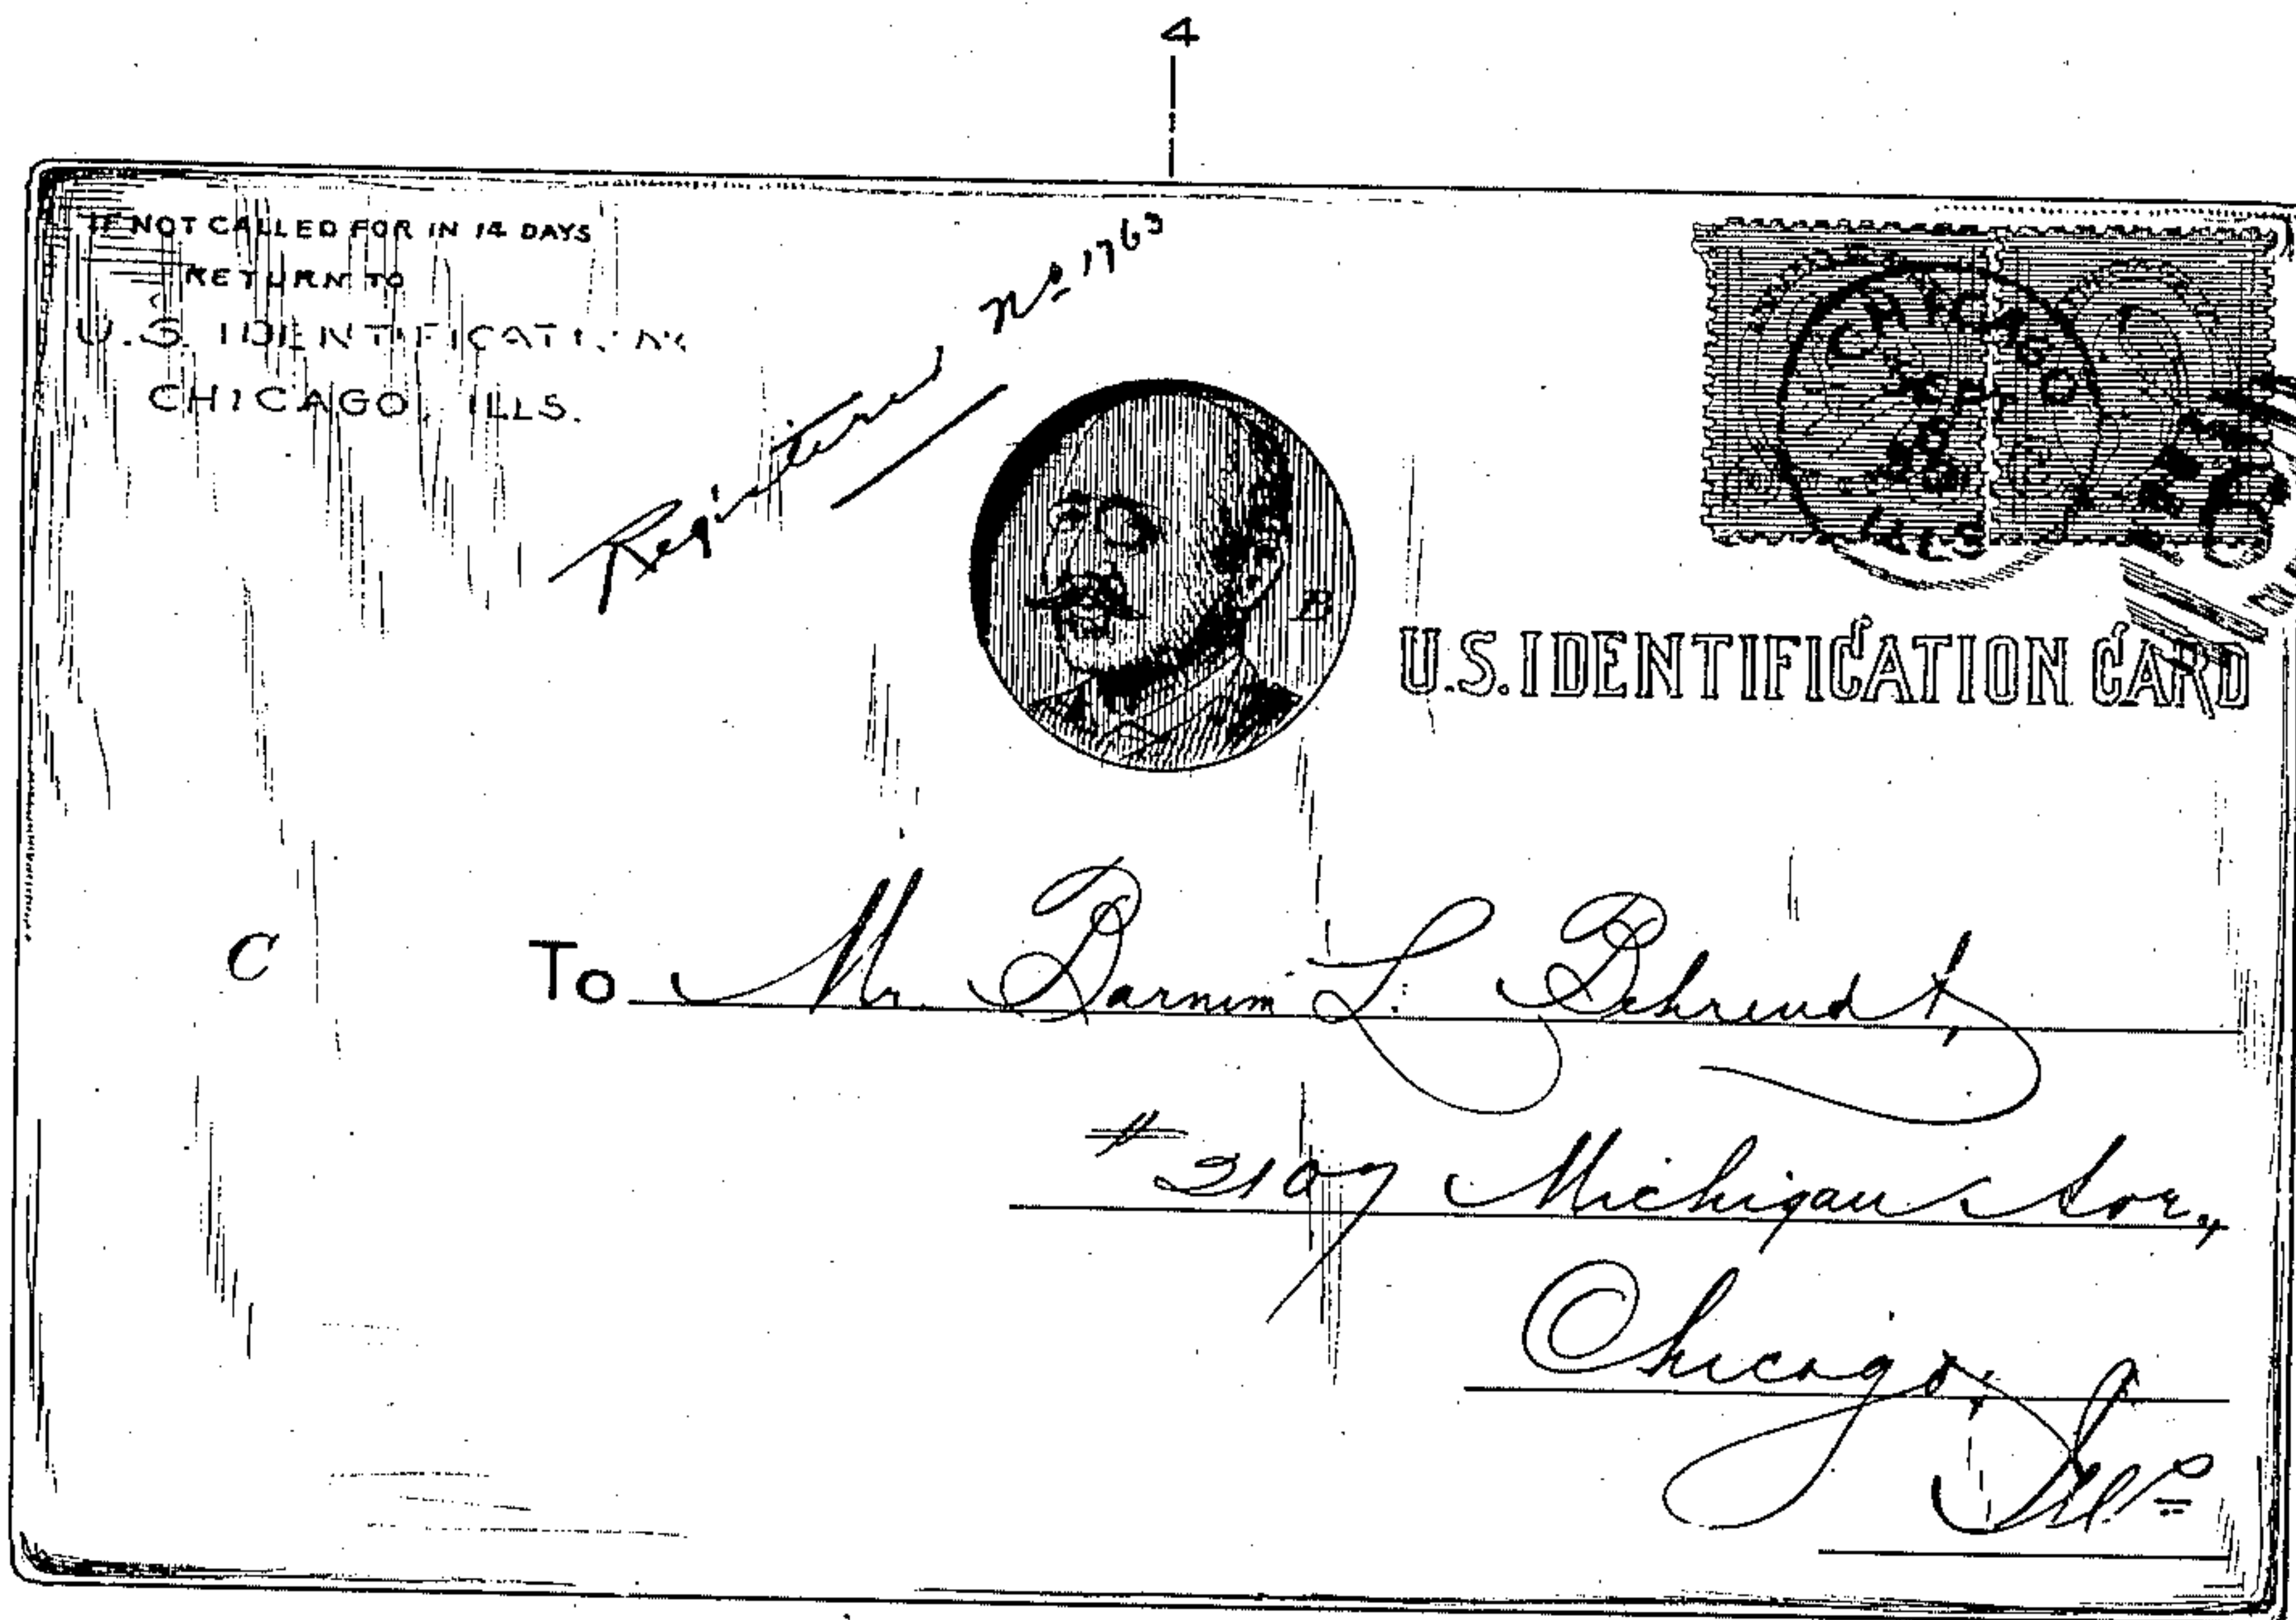 4
IF NOT CALLED FOR IN 14 DAYS
RETURN TO
U.S. IDENTIFICATION
CHICAGO, ILLS.
Registered No 1763
CHICAGO
SEPT
ILLS
B
U.S. IDENTIFICATION CARD
C
To Mr. Barnim L. Behrendt,
#2107 Michigan Ave.,
Chicago,
Ills